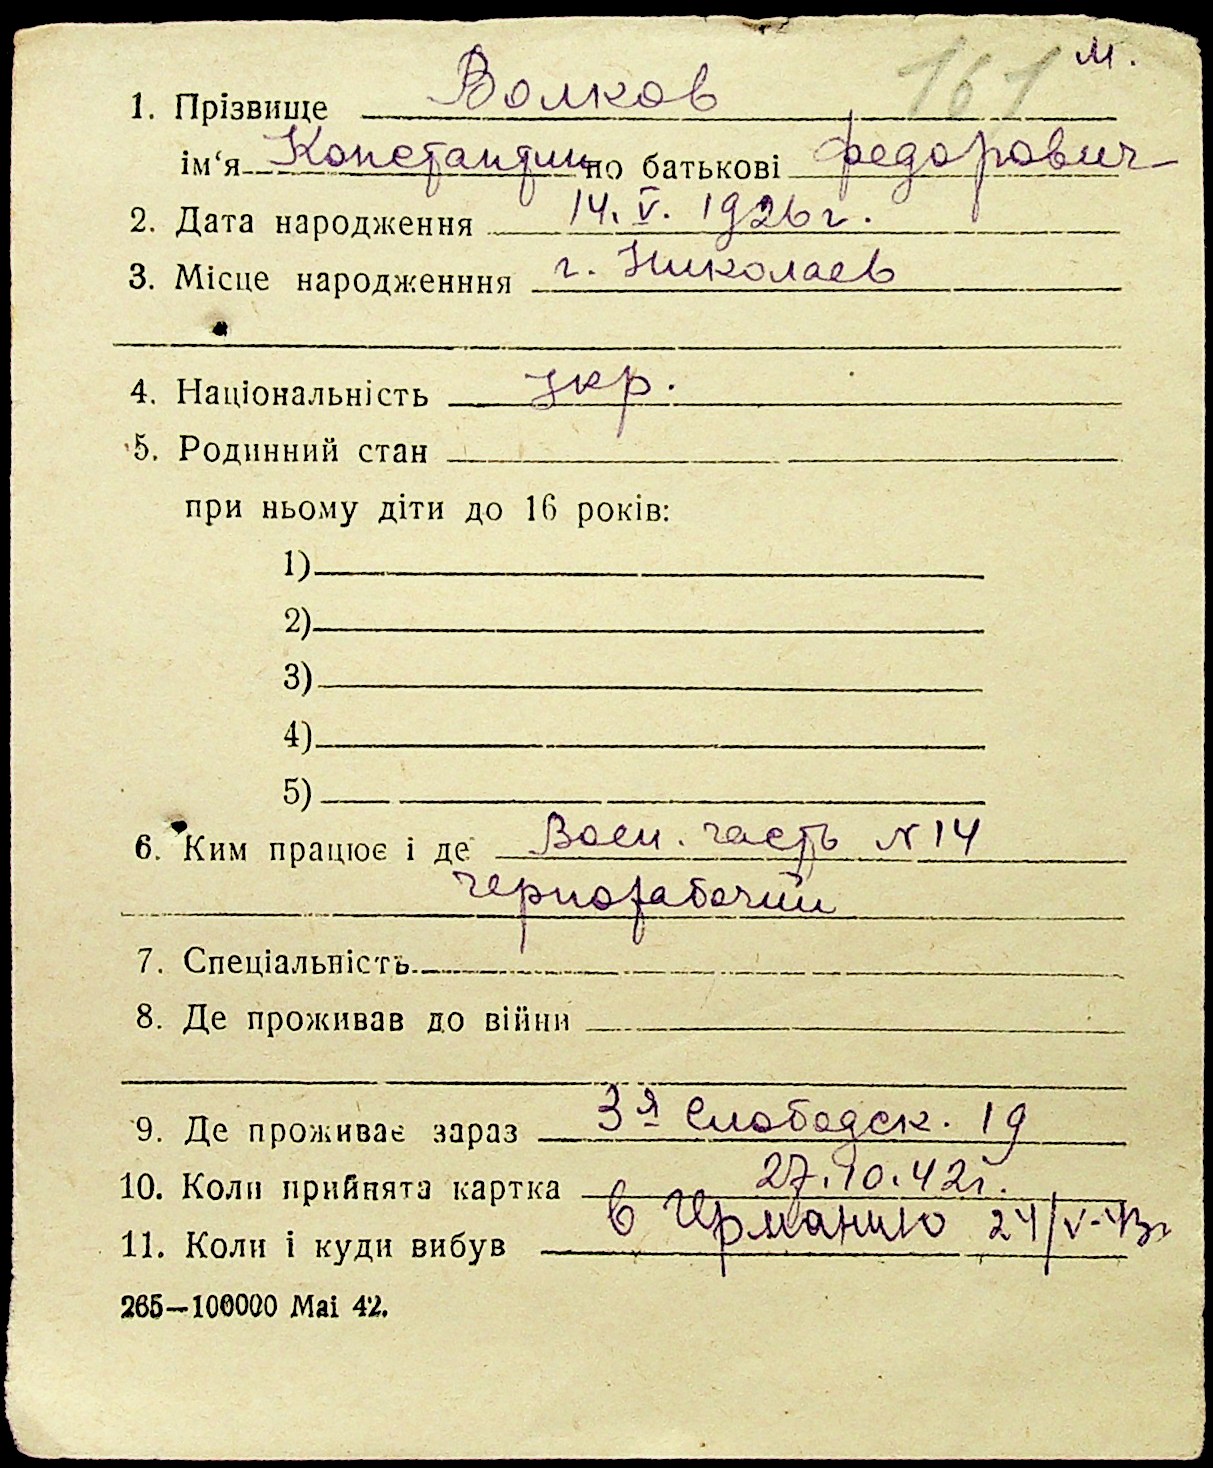 161 м.
1. Прізвище Волков
ім‘я Константин по батькові Федорович
2. Дата народження 14. V. 1926 г.
3. Місце народженння г. Николаев
4. Національність укр.
5. Родинний стан
при ньому діти до 16 років:
1)
2)
3)
4)
5)
6. Ким працює і де Воен. часть N 14
чернорабочий
7. Спеціальність
8. Де проживав до війни
9. Де проживає зараз 3я Слободск. 19
10. Коли прийнята картка 27.10.42г.
11. Коли і куди вибув в Германию 24/V-43г
265—100000 Mai 42.